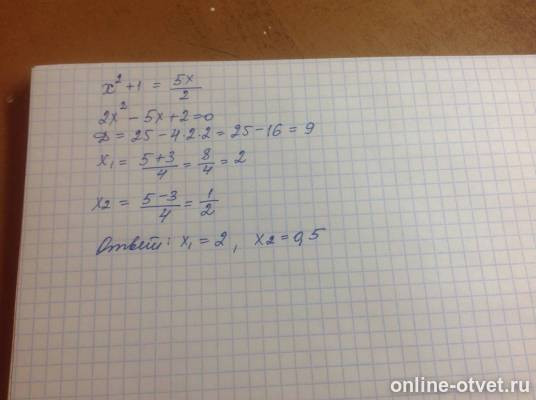 x² + 1 = 5x/2
2x² - 5x + 2 = 0
D = 25 - 4·2·2 = 25 - 16 = 9
x₁ = 5+3/4 = 8/4 = 2
x₂ = 5-3/4 = 1/2
Ответ: x₁ = 2, x₂ = 0,5
online-otvet.ru